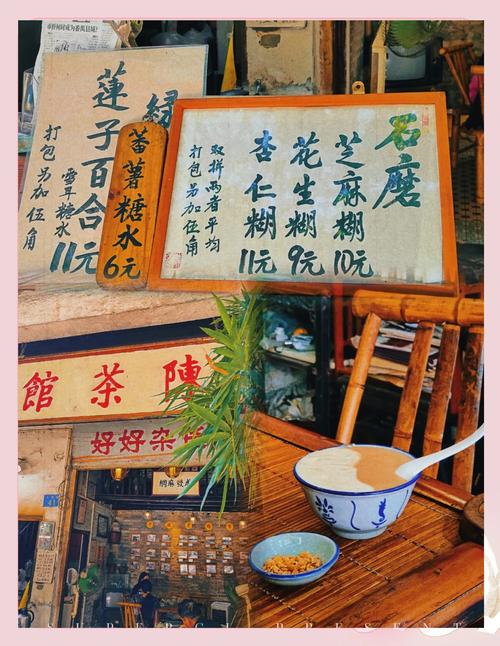 蓮子百合
雪耳糖水
打包另加伍角
11元
蕃薯糖水
6元
石磨
芝麻糊
10元
花生糊
9元
杏仁糊
11元
双拼两者平均
打包另加伍角
陳茶館
好好杂
SUPERGI PRESENT